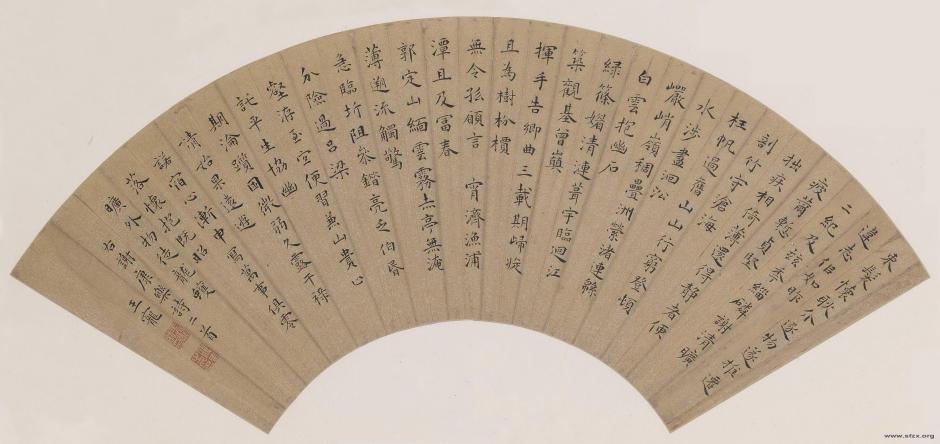 束髮懷耿介逐物遂推遷
違志似如昨
二紀及茲年緇磷謝清曠
疲薾慚貞堅
拙疾相倚薄還得靜者便
剖竹守滄海
枉帆過舊山山行窮登頓
水涉盡洄沿
巖峭嶺稠疊洲縈渚連緜
白雲抱幽石
綠篠媚清漣葺宇臨迴江
築觀基曾巔
揮手告鄉曲三載期歸旋
且為樹枌檟
無令孤願言 宵濟漁浦
潭旦及富春
郭定山緬雲霧赤亭無淹
薄遡流觸驚
急臨圻阻參錯亮乏伯昏
分險過呂梁
壑洊至宜便習兼山貴止
託平生協幽
期淪躓困微弱久露干祿
請始果遠遊
諾宿心漸申寫萬事俱零
落懷抱既昭
曠外物徒龍蠖
右謝康樂詩二首
王寵
www.sfzx.org